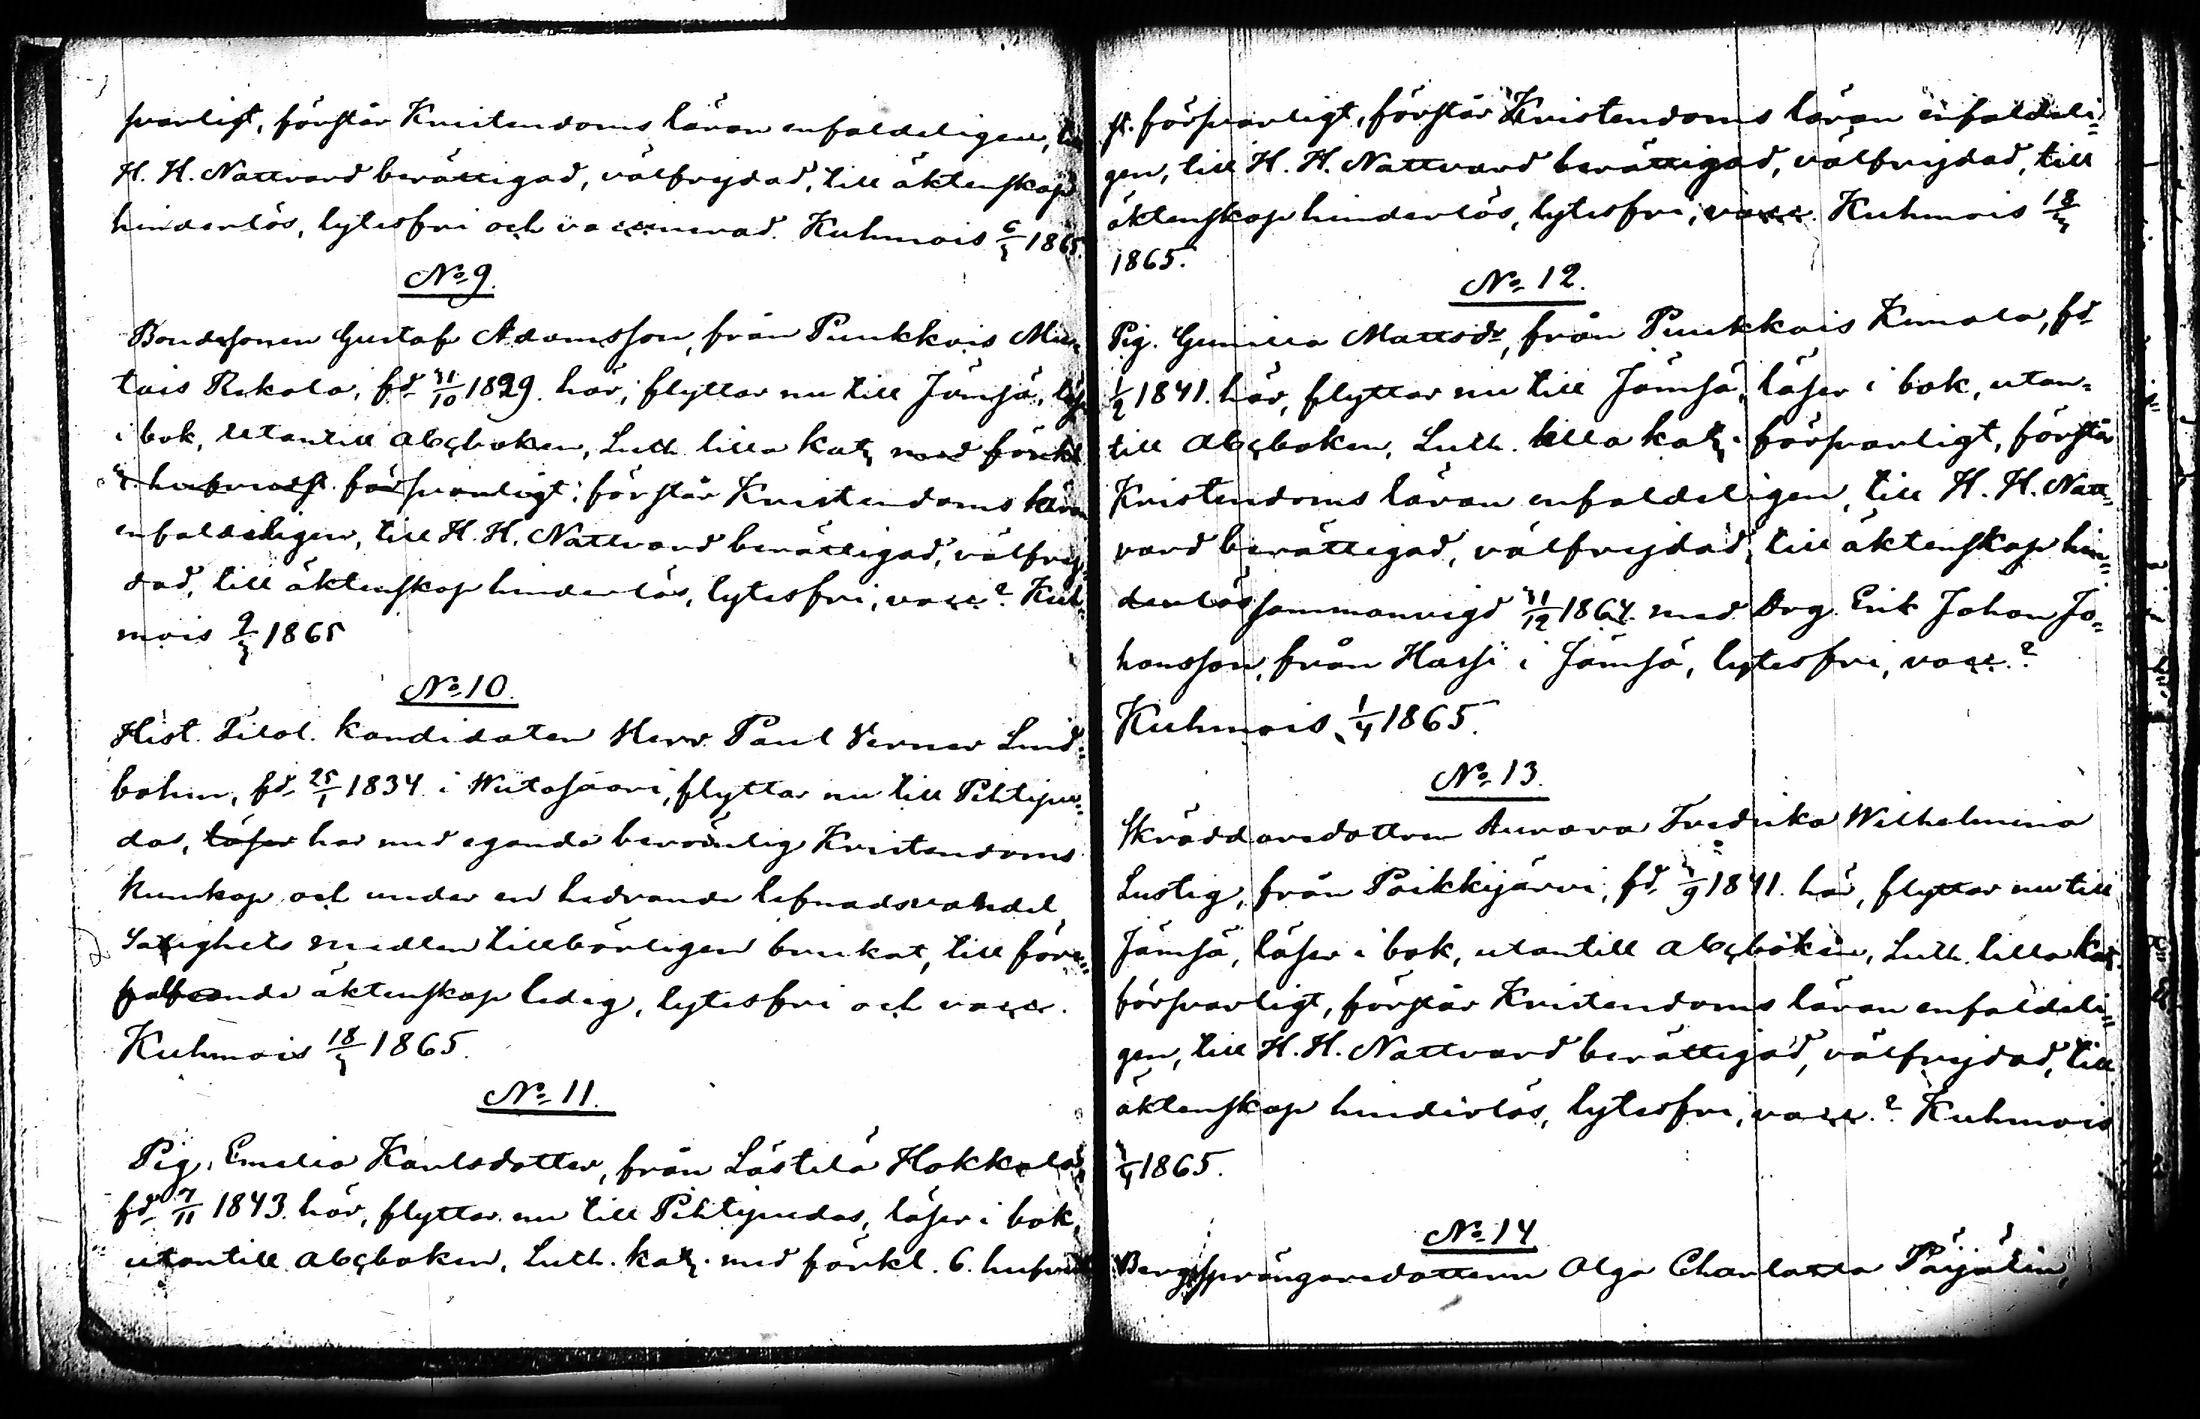 svarligt, förstår Kristendoms läran enfaldeligen, till
H. H. Nattvard berättigad, välfrejdad, till äktenskap
hinderlös, lytesfri och vaccinerad. Kuhmois 6/3 1865.
No 9.
Bondesonen Gustaf Adamsson, från Puukkois
tais Rekola, fd 31/10 1829. här, flyttar nu till Jämsä, läser
i bok, utantill abcboken, Luth. lilla katz med förkl
6. hufvudst. försvarligt; förstår Kristendoms läran
enfaldeligen, till H. H. Nattvard berättigad, välfrej-
dad, till äktenskap hinderlös, lytesfri, vacc.? Kuh-
mois 9/3 1865
No 10.
Hist. Filol. kandidaten Herr Paul Verner Lind-
bohm, fd 25/1 1834 i Wiitasaari, flyttar nu till Pihtipu-
das, läser har med egande berömlig Kristendoms
kunskap och under en hedrande lefnadsvandel,
Salighets medlen tillbörligen brukat, till före-
fallande äktenskap ledig, lytesfri och vacc.
Kuhmois 18/3 1865.
No 11.
Pig. Emelia Karlsdotter, från Lästilä Hokkala,
fd 7/11 1843. här, flyttar nu till Pihtipudas, läser i bok,
utantill abcboken, Luth. katz. med förkl. 6. hufvud
st. försvarligt, förstår Kristendoms läran enfaldeli-
gen, till H. H. Nattvard berättigad, välfrejdad, till
äktenskap hinderlös, lytesfri, vacc. Kuhmois 18/3
1865.
No 12.
Pig. Gunilla Mattsdr, från Puukkois Kimola, fd
1/2 1841. här, flyttar nu till Jämsä, läser i bok, utan-
till abcboken, Luth. lilla katz. försvarligt, förstår
Kristendoms läran enfaldeligen, till H. H. Natt-
vard berättigad, välfrejdad, till äktenskap hin-
derlös sammanvigd 31/12 1864. med Drg. Erik Johan Jo-
hansson, från Hassi i Jämsä, lytesfri, vacc.?
Kuhmois 1/4 1865.
No 13.
Skräddaredottren Aurora Fredrika Wilhelmina
Lustig, från Poikkijärvi, fd 3/9 1841. här, flyttar nu till
Jämsä, läser i bok, utantill abcboken, Luth. lilla katz.
försvarligt, förstår Kristendoms läran enfaldeli-
gen, till H. H. Nattvard berättigad, välfrejdad, till
äktenskap hinderlös, lytesfri, vacc.? Kuhmois
3/4 1865.
No 14
Bergsprängaredottern Olga Charlotta Päijälin,